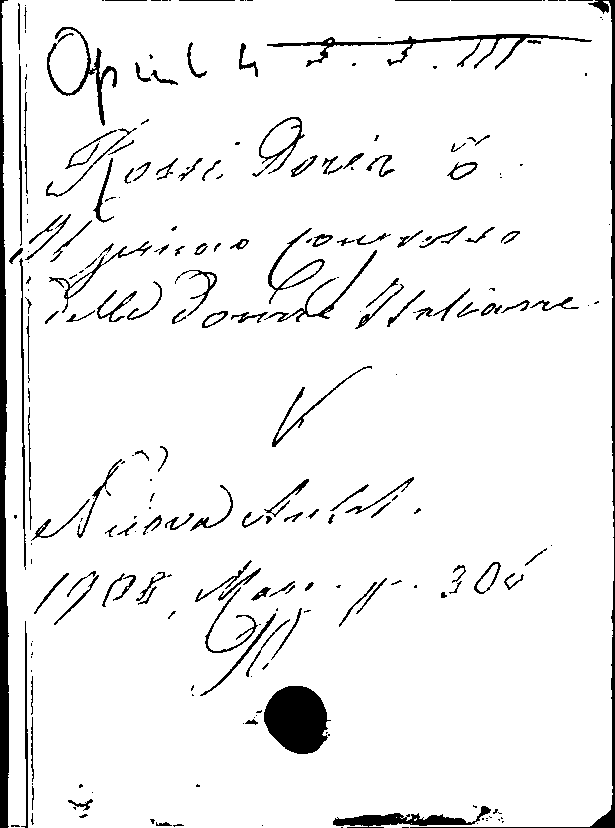 Opuscoli 3. 3. III
Rossi Doria
Il primo congresso
delle Donne Italiane
V
Nuova Antol.
1908, Mag. p. 306